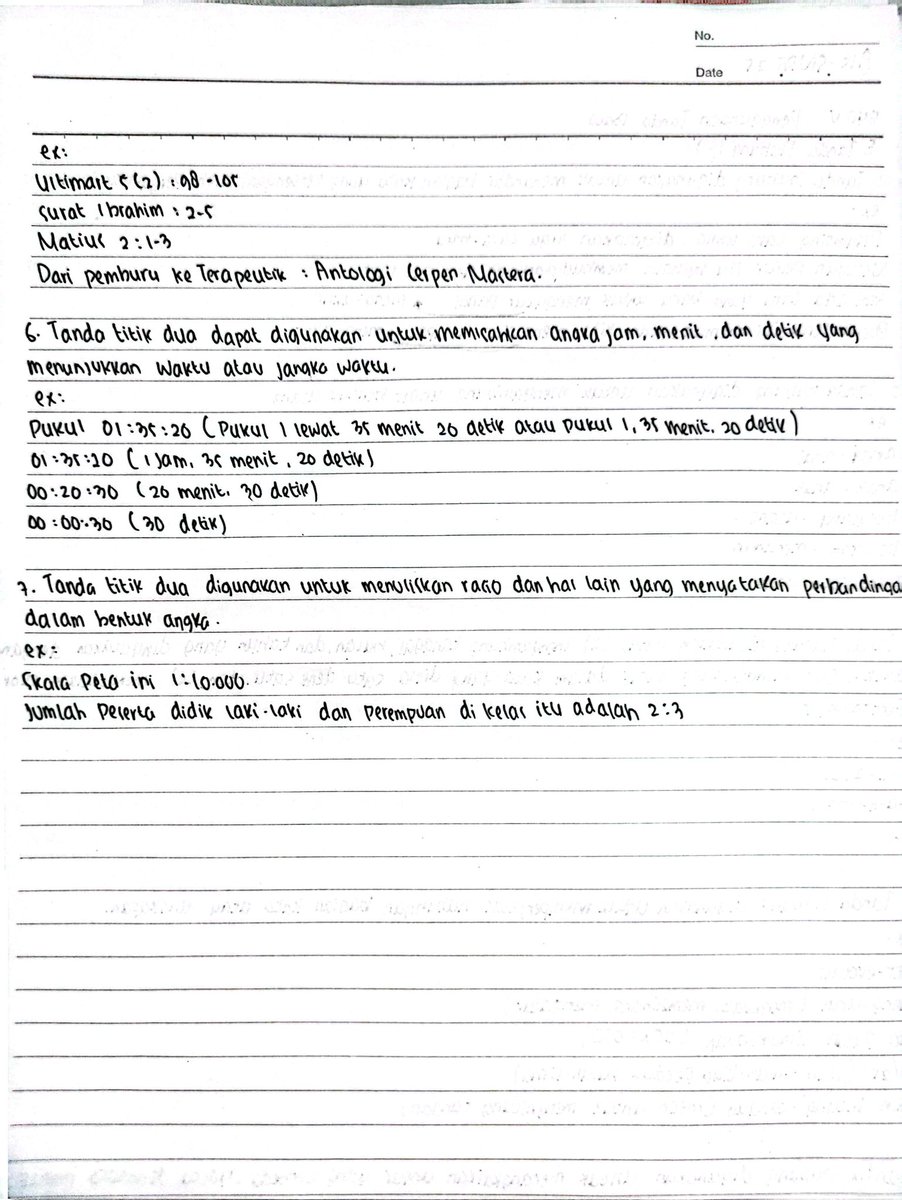 No.
Date
ex:
Ultimart 5 (2) : 98 - 105
Surat Ibrahim : 2-5
Matius 2 : 1-3
Dari pemburu ke Terapeutik : Antologi Cerpen Mastera.
6. Tanda titik dua dapat digunakan untuk memisahkan angka jam, menit, dan detik yang
menunjukkan waktu atau jangka waktu.
ex:
Pukul 01:35:20 (Pukul 1 lewat 35 menit 20 detik atau pukul 1, 35 menit, 20 detik)
01:35:20 (1 jam, 35 menit, 20 detik)
00:20:30 (20 menit, 30 detik)
00:00:30 (30 detik)
7. Tanda titik dua digunakan untuk menuliskan rasio dan hal lain yang menyatakan perbandinga
dalam bentuk angka.
ex:
Skala peta ini 1:10.000
Jumlah peserta didik laki-laki dan perempuan di kelas itu adalah 2:3